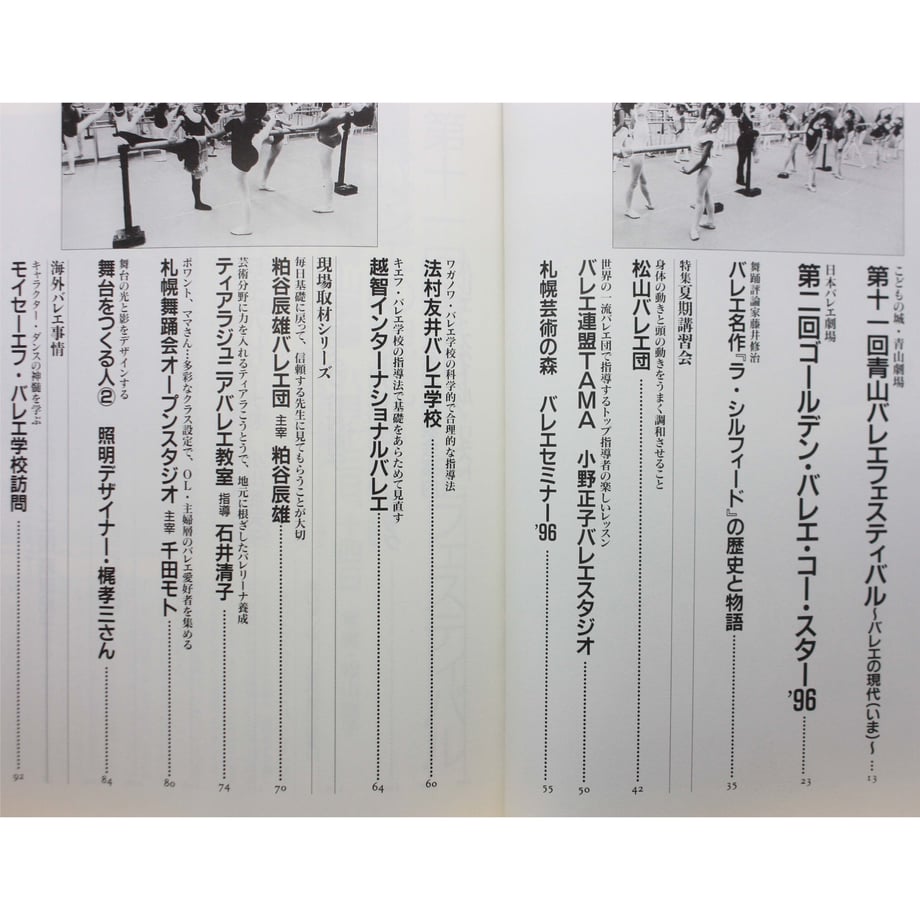 こどもの城・青山劇場
第十一回青山バレエフェスティバル〜バレエの現代(いま)〜…13
日本バレエ劇場
第二回ゴールデン・バレエ・コー・スター'96………23
舞踊評論家藤井修治
バレエ名作『ラ・シルフィード』の歴史と物語………35
特集夏期講習会
身体の動きと頭の動きをうまく調和させること
松山バレエ団………42
世界の一流バレエ団で指導するトップ指導者の楽しいレッスン
バレエ連盟TAMA 小野正子バレエスタジオ………50
札幌芸術の森 バレエセミナー'96………55
ワガノワ・バレエ学校の科学的で合理的な指導法
法村友井バレエ学校………60
キエフ・バレエ学校の指導法で基礎をあらためて見直す
越智インターナショナルバレエ………64
現場取材シリーズ
毎日基礎に戻って、信頼する先生に見てもらうことが大切
粕谷辰雄バレエ団 主宰 粕谷辰雄………70
芸術分野に力を入れるティアラこうとうで、地元に根ざしたバレリーナ養成
ティアラジュニアバレエ教室 指導 石井清子………74
ポワント、ママさん…多彩なクラス設定で、OL・主婦層のバレエ愛好者を集める
札幌舞踊会オープンスタジオ 主宰 千田モト………80
舞台の光と影をデザインする
舞台をつくる人② 照明デザイナー・梶孝三さん………84
海外バレエ事情
キャラクター・ダンスの神髄を学ぶ
モイセーエフ・バレエ学校訪問………92